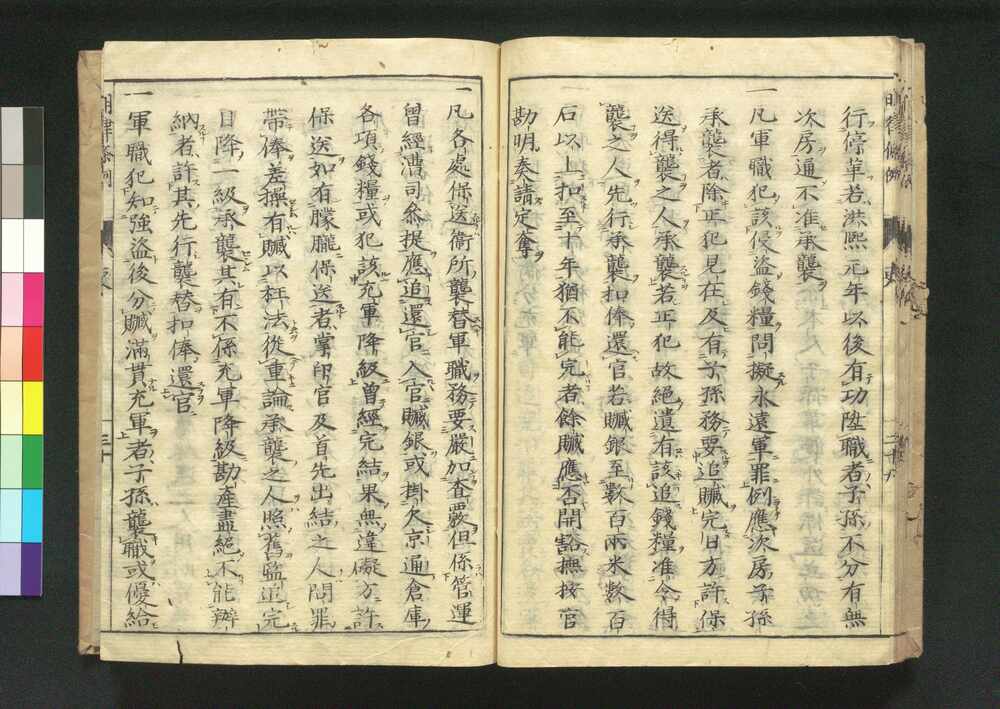 行停革若洪熙元年以後有功陞職者子孫不分有無
次房通不准承襲
一凡軍職犯該侵盜錢糧問擬永遠軍罪例應次房子孫
承襲者除正犯見在及有子孫務要追贓完日方許保
送得襲之人承襲若正犯故絕遺有該追錢糧准令得
襲之人先行承襲扣俸還官若贓銀至數百兩米數百
石以上扣至十年猶不能完者餘贓應否開豁撫按官
勘明奏請定奪
一凡各處保送衞所襲替軍職務要嚴加査覈但係管運
曾經漕司叅提應追還官入官贓銀或掛欠京通倉庫
各項錢糧或犯該充軍降級曾經完結果無違礙方許
保送如有朦朧保送者掌印官及首先出結之人問罪
帶俸差操有贓以枉法從重論承襲之人照舊監追完
日降一級承襲其有不係充軍降級勘產盡絕不能辨
納者許其先行襲替扣俸還官
一軍職犯知強盜後分贓滿貫充軍者子孫襲職或優給
明律條例
三十